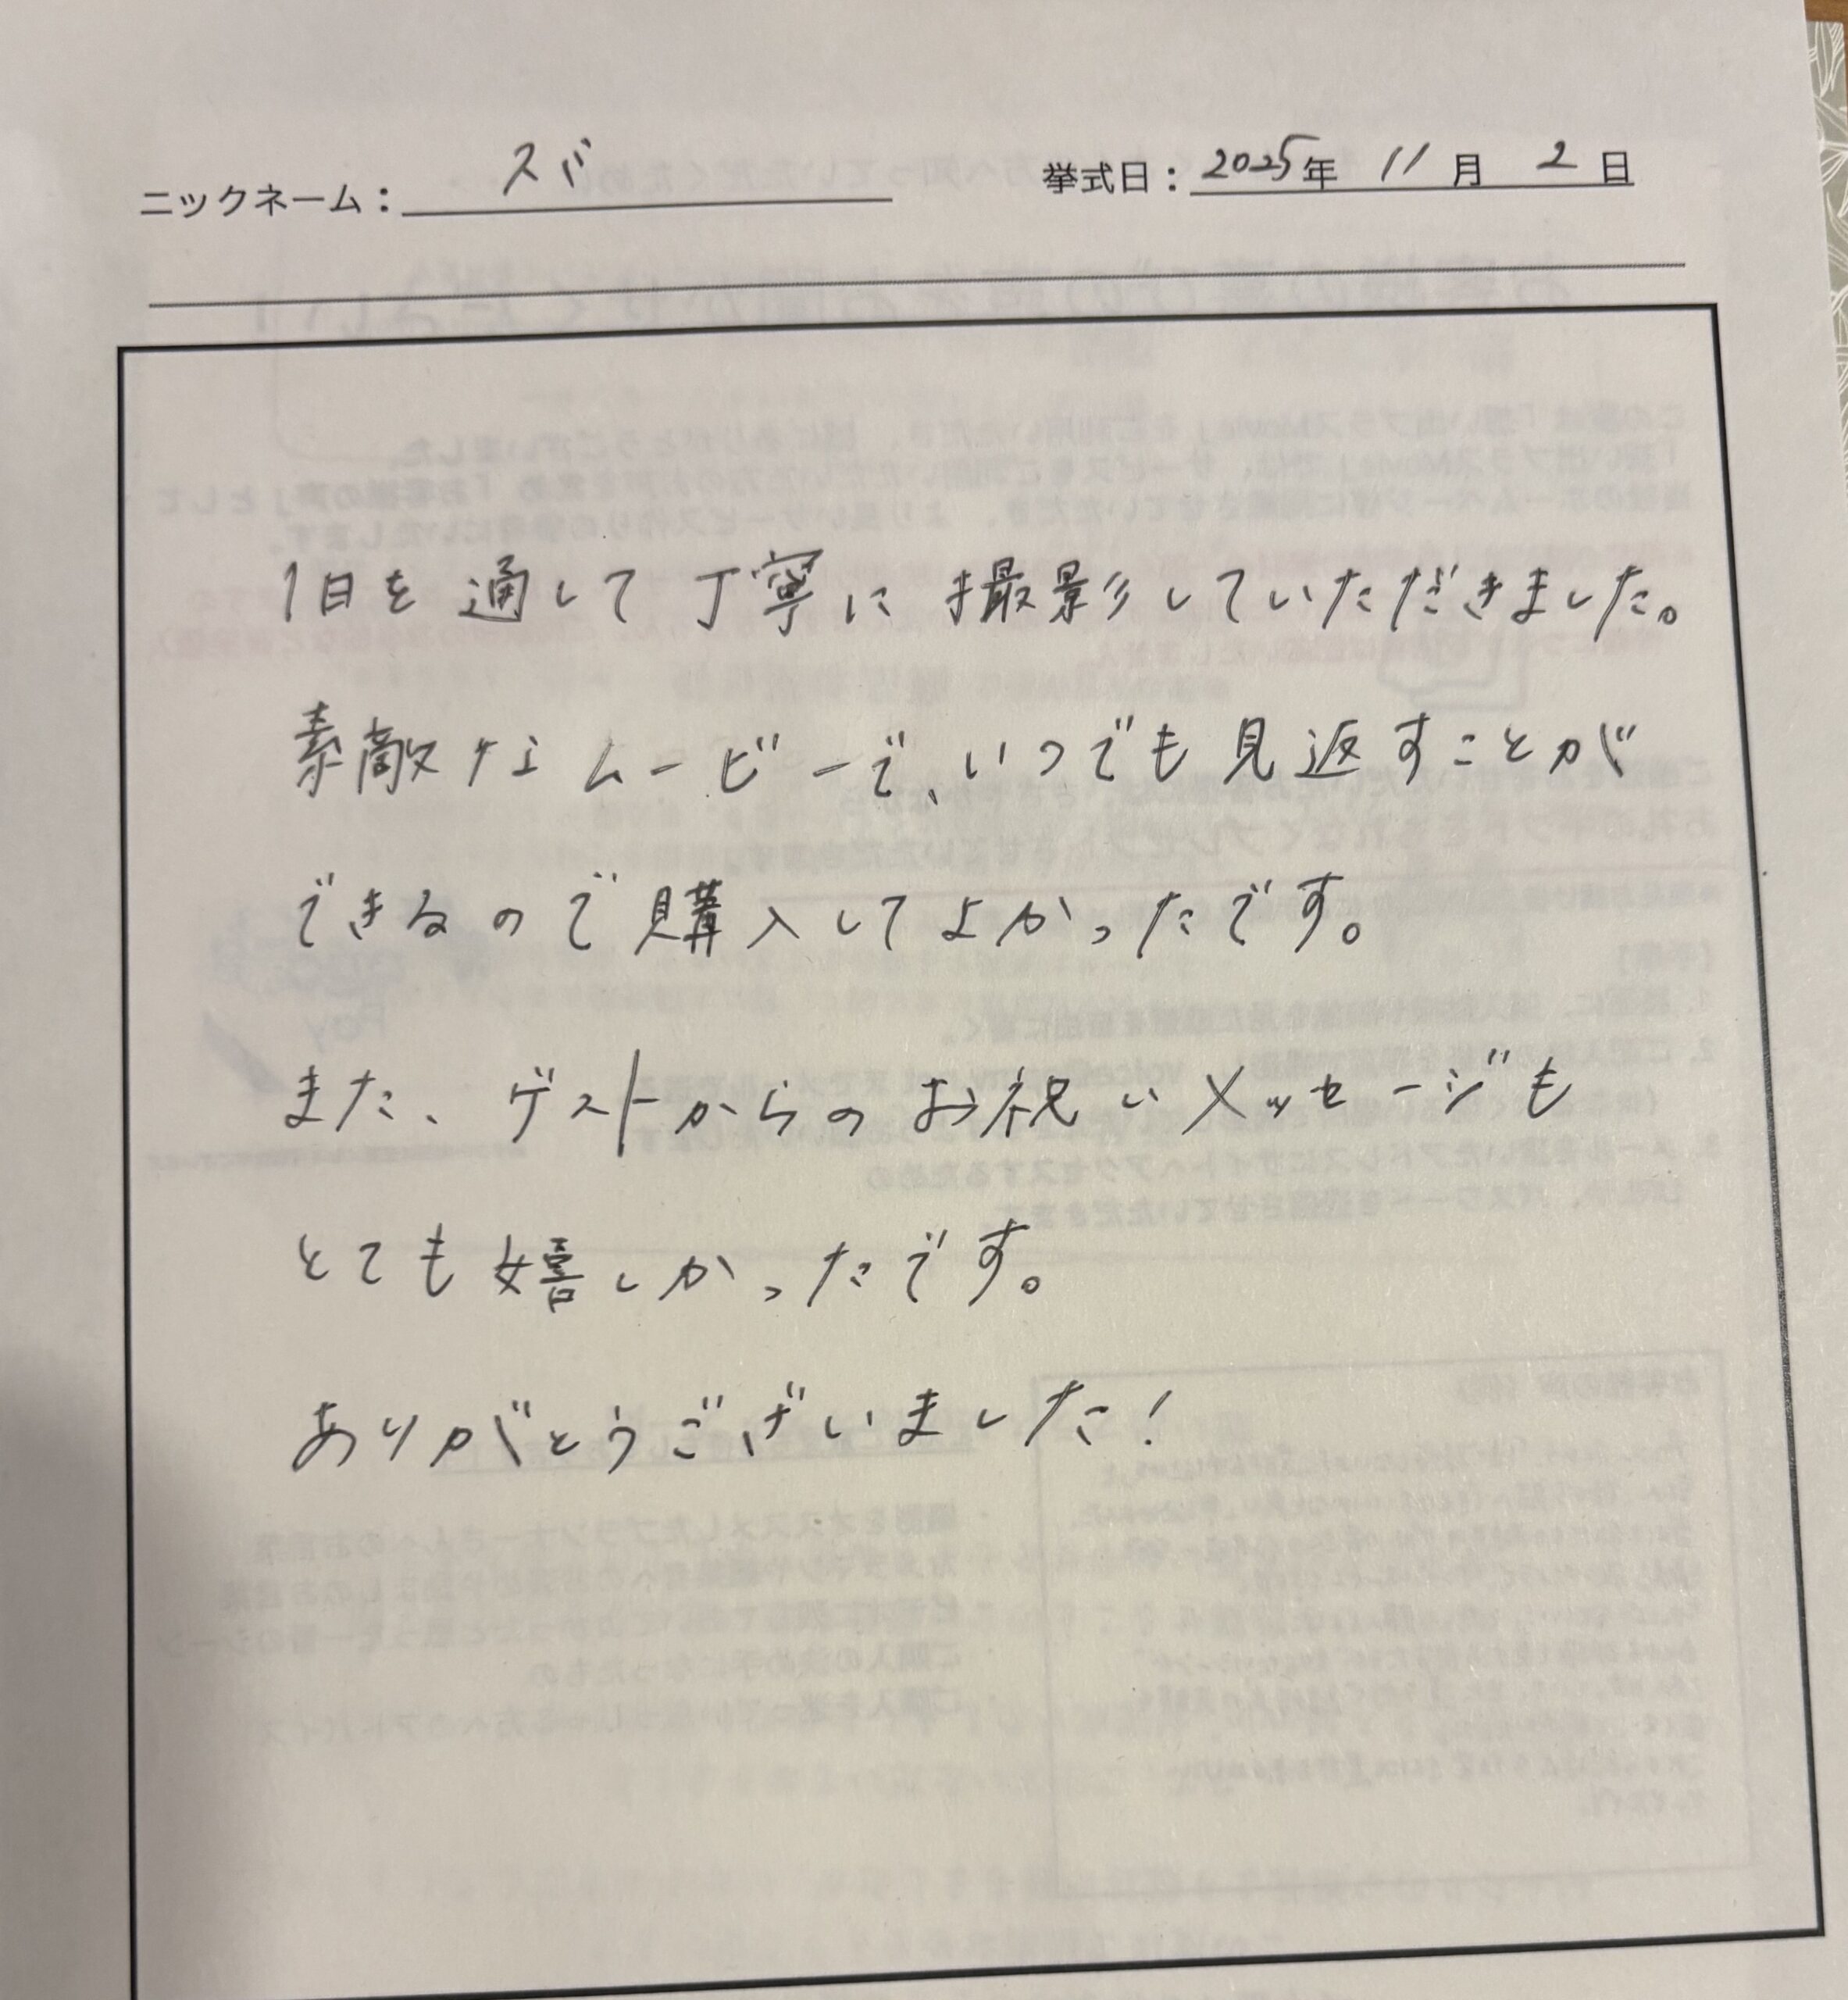 ニックネーム：スバ 挙式日：2025年 11月 2日
1日を通して丁寧に撮影していただきました。
素敵なムービーで、いつでも見返すことが
できるので購入してよかったです。
また、ゲストからのお祝いメッセージも
とても嬉しかったです。
ありがとうございました！